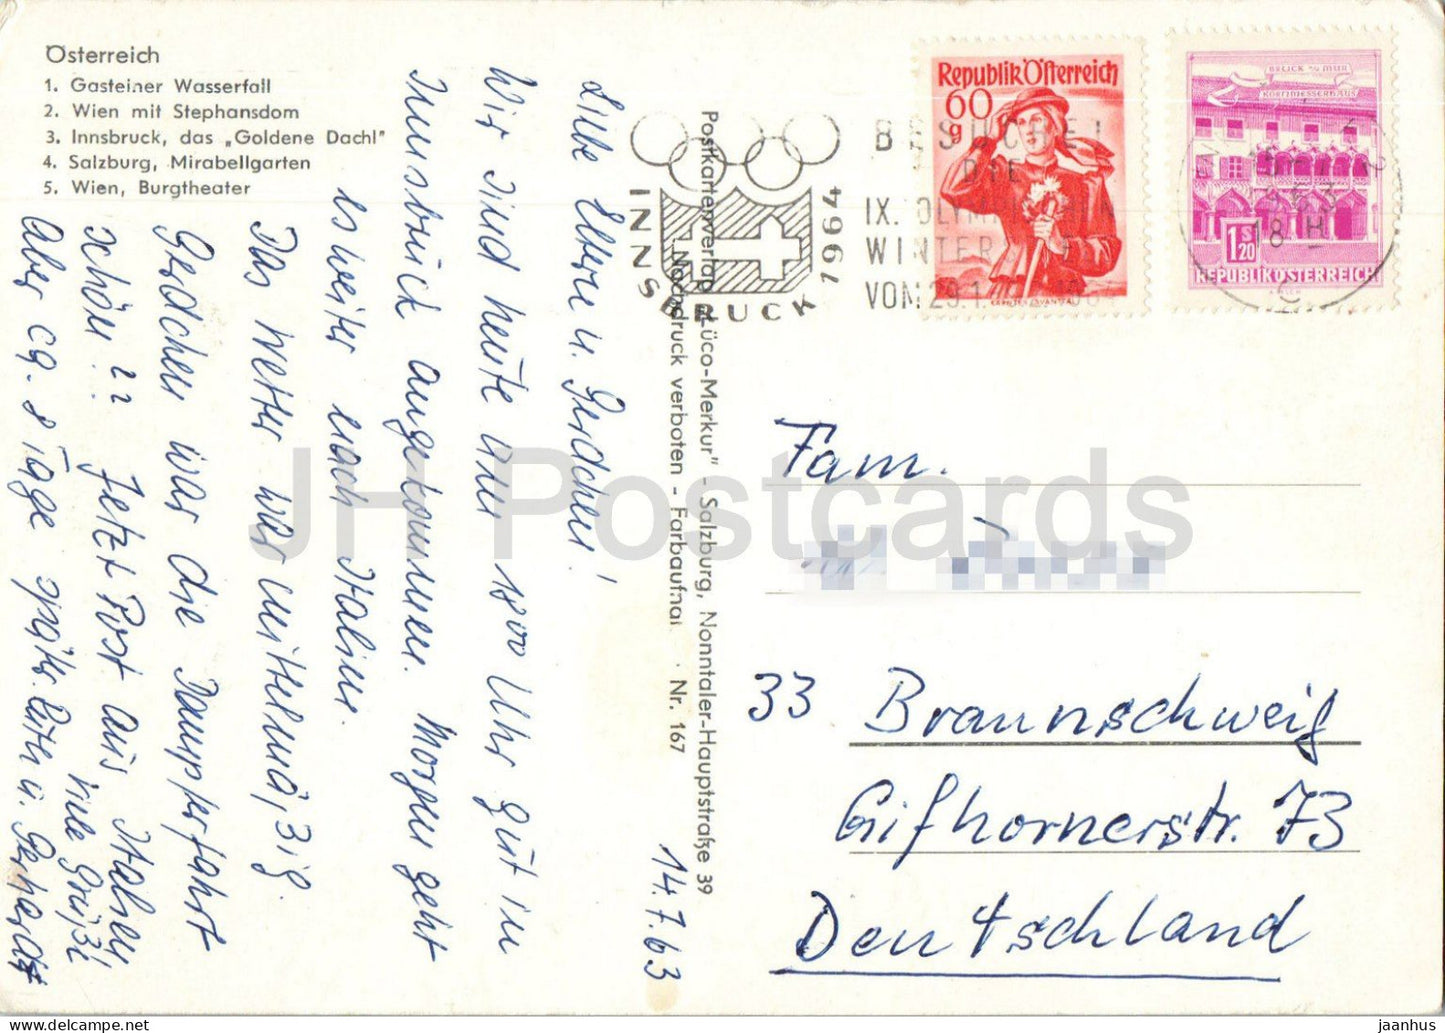 Österreich
1. Gasteiner Wasserfall
2. Wien mit Stephansdom
3. Innsbruck, das „Goldene Dachl"
4. Salzburg, Mirabellgarten
5. Wien, Burgtheater
14.7.63
Liebe Eltern u. Gerdchen!
Wir sind heute um 1800 Uhr gut in
Innsbruck angekommen. Morgen geht
es weiter nach Italien.
Das Wetter war mittelmäßig.
Gerdchen war die Dampferfahrt
schön?? Jetzt Post aus Italien
Aber ca. 8 Tage später.
Viele Grüße
u. Gerhard
Postkartenverlag „Lüco-Merkur" - Salzburg, Nonntaler-Hauptstraße 39
Nachdruck verboten - Farbaufnai Nr. 167
INNSBRUCK 1964
BESUCHET
DIE
IX. OLYMPISCHEN
WINTER
VOM 29.1.
Republik Österreich
60 g
BRUCK a/d MUR
KORNMESSERHAUS
1 S 20
REPUBLIK ÖSTERREICH
18 H
C
Fam.
33 Braunschweig
Gifhornerstr. 73
Deutschland
JH Postcards
jaanhus.com